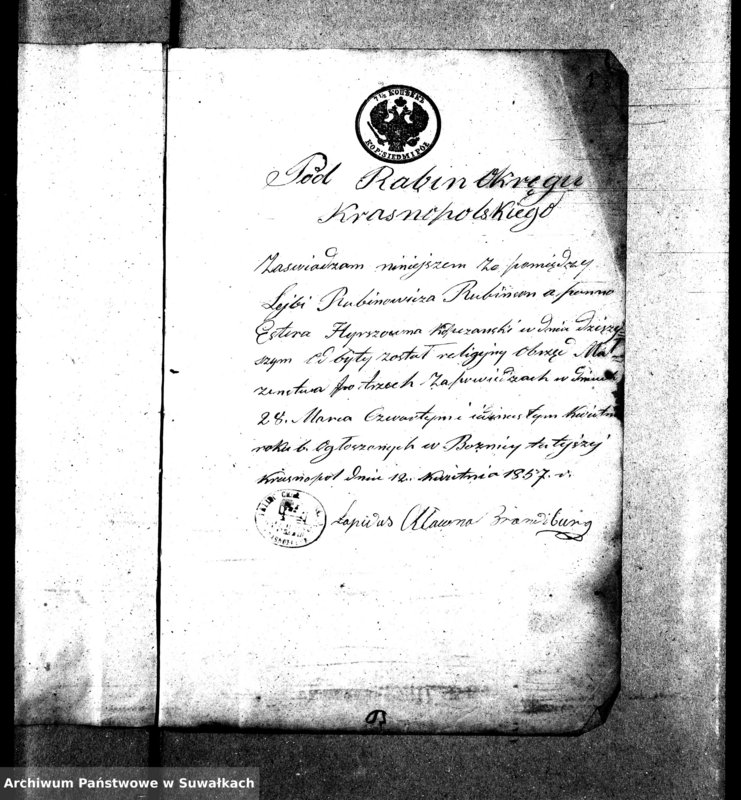 7½ КОПѢЕКЪ
KOP: SIEDM I PÓŁ
Pod Rabin Okręgu
Krasnopolskiego
Zaswiadzam niniejszem Ze pomiędzy
Lejbi Rubinowiza Rubinson a panno
Estera Hyrszowna w dniu dzisiey
szym od byty został religijny Obrzęd Mał
zenstwa po trzech Zapowiedzach w dniach
28. Marca Czwartym i iedenastym Kwietn
roku b. Ogłoszonych w Boznicy tutyszej
Krasnopol dnia 12. Kwietnia 1857. r.
Łapidas Brandburg
Archiwum Państwowe w Suwałkach